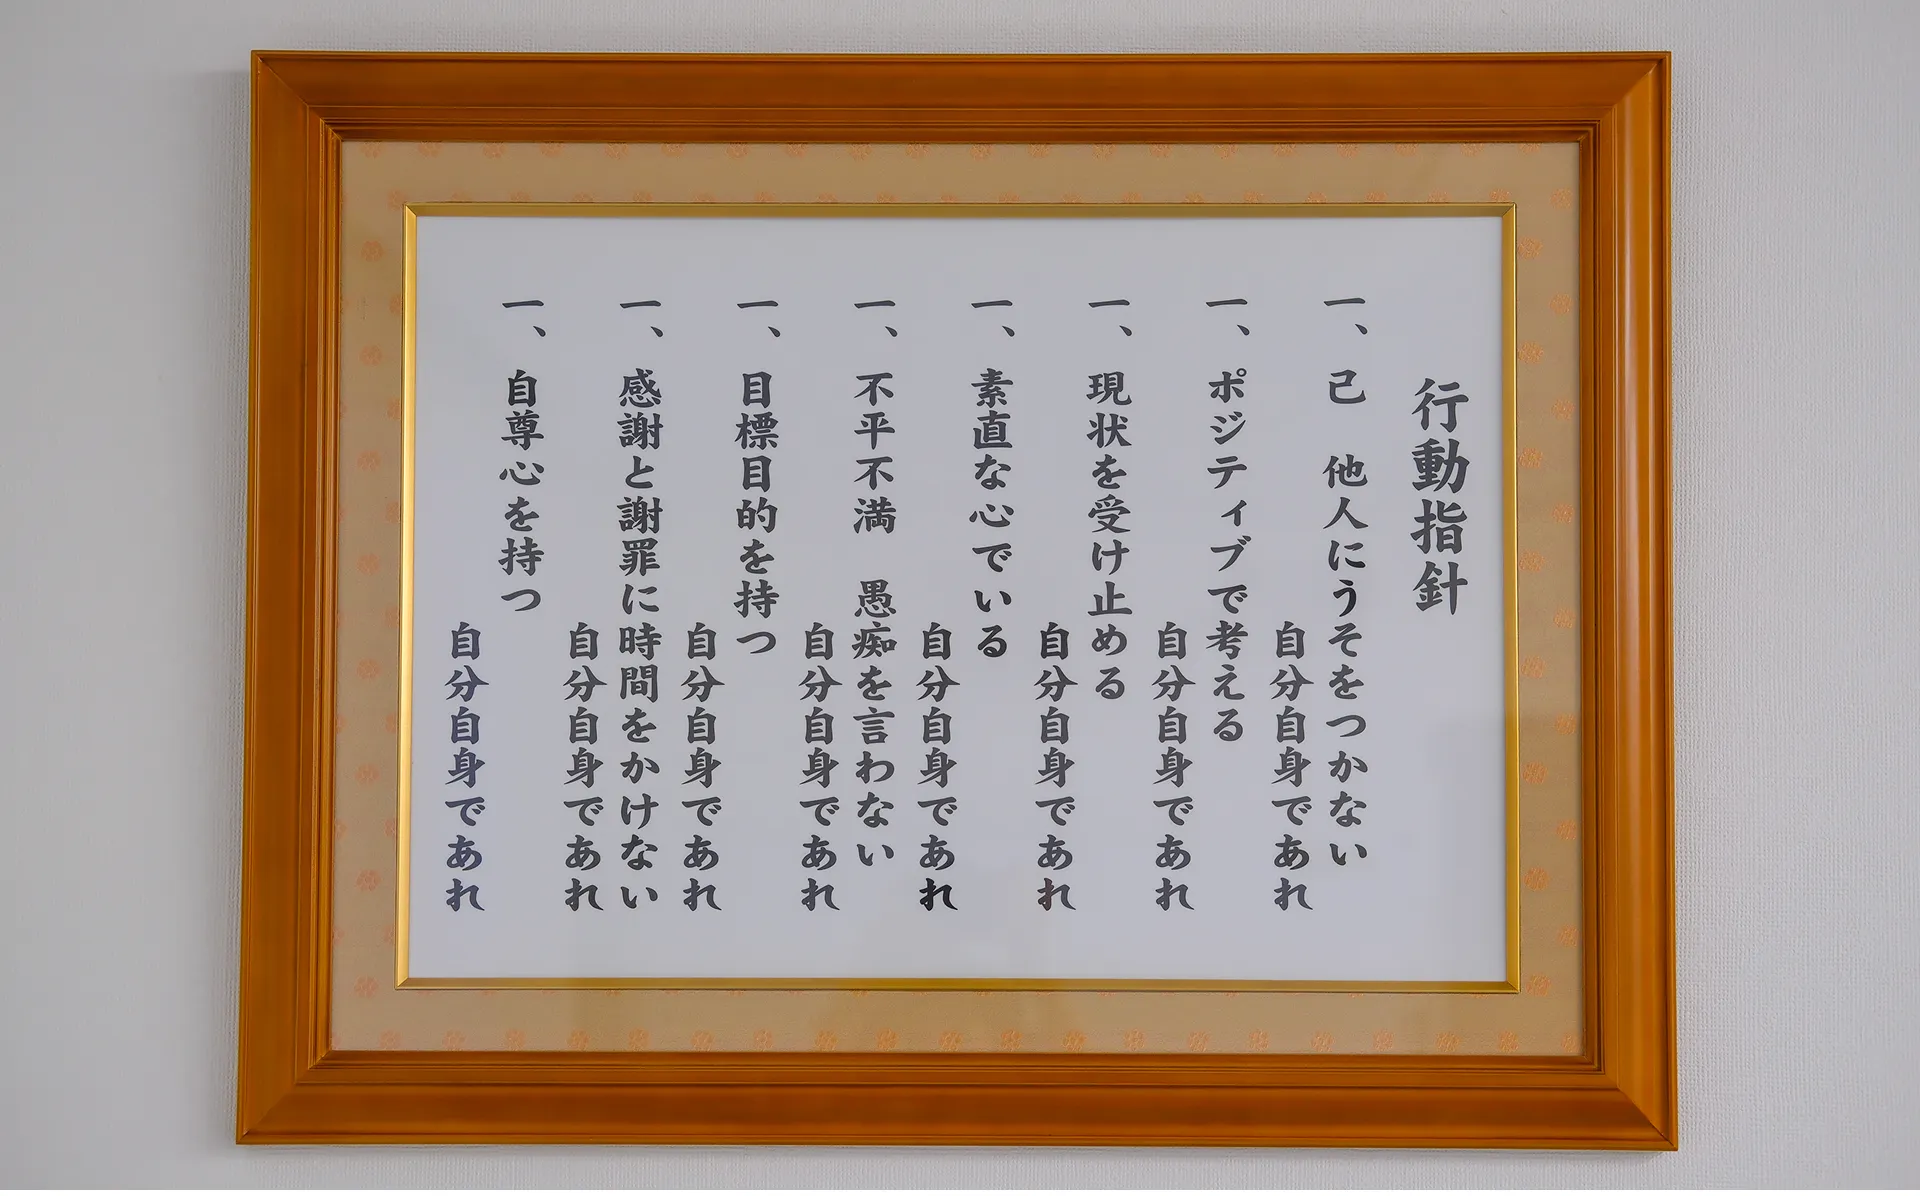 行動指針
一、己　他人にうそをつかない
自分自身であれ
一、ポジティブで考える
自分自身であれ
一、現状を受け止める
自分自身であれ
一、素直な心でいる
自分自身であれ
一、不平不満　愚痴を言わない
自分自身であれ
一、目標目的を持つ
自分自身であれ
一、感謝と謝罪に時間をかけない
自分自身であれ
一、自尊心を持つ
自分自身であれ